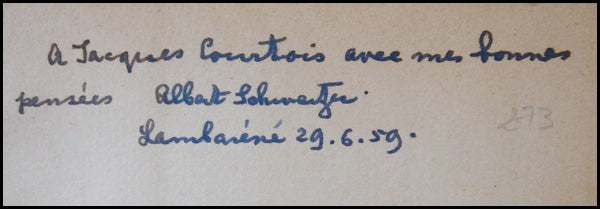 A Jacques Courtois avec mes bonnes
pensées Albert Schweitzer.
Lambaréné 29.6.59.
273